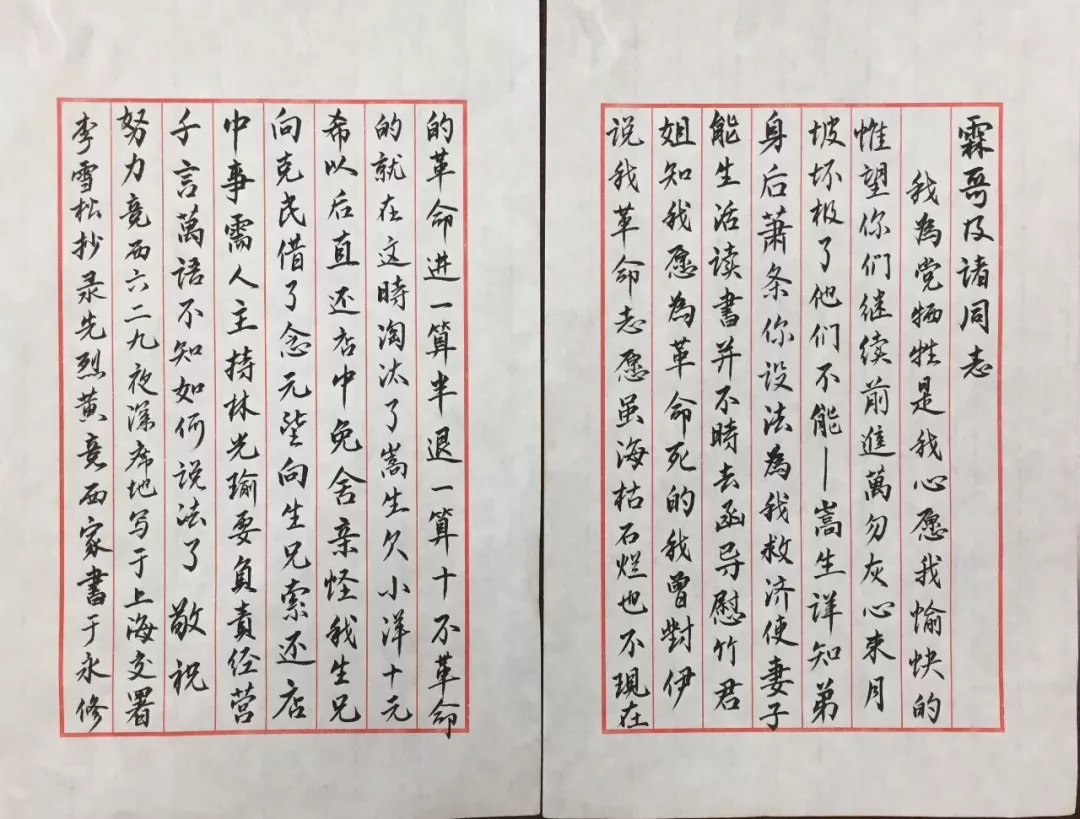 霖哥及诸同志
我为党牺牲是我心愿我愉快的
惟望你们继续前進萬勿灰心束月
坡坏极了他们不能—嵩生详知弟
身后萧条你设法为我救济使妻子
能生活读书并不時去函导慰竹君
姐知我愿为革命死的我曾對伊
说我革命志愿虽海枯石烂也不現在
的革命进一算半退一算十不革命
的就在这時淘汰了嵩生欠小洋十元
希以后直还店中免舍亲怪我生兄
向克民借了念元望向生兄索还店
中事需人主持林光瑜要负责经营
千言萬语不知如何说法了 敬祝
努力竞西六二九夜深席地写于上海交署
李雪松抄录先烈黄竞西家书于永修